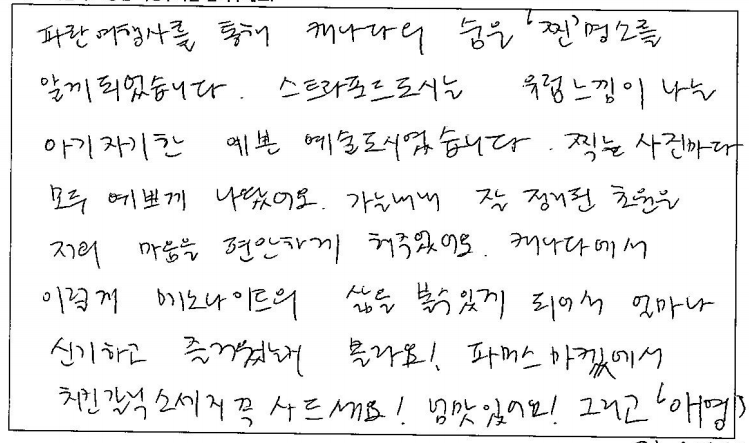 파란여행사를 통해 캐나다의 숨은 '찐'명소를
알게되었습니다. 스트라포드도시는 유럽느낌이 나는
아기자기한 예쁜 예술도시였습니다. 찍는 사진마다
모두 예쁘게 나왔어요. 가는내내 잘 정리된 초원은
저의 마음을 편안하게 해주었어요. 캐나다에서
이렇게 메노나이트의 삶을 볼수있게 되어서 얼마나
신기하고 즐거웠는지 몰라요! 파머스마켙에서
치킨갈릭소세지 꼭 사드세요! 넘맛있어요! 그리고 '애령'